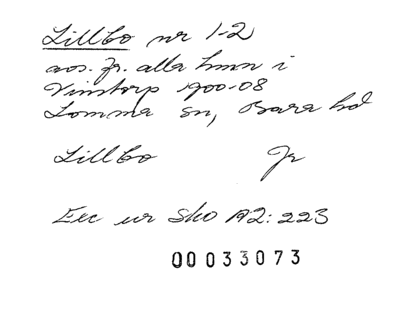 Lillbo nr 1-2
avs. fr. alla hmn i
Vinstorp 1900-08
Lomma sn, Bara hd
Lillbo Jr
Exc ur Sko A2:223
00033073